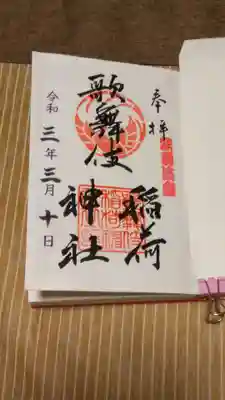 奉拝
歌舞伎
稲荷
神社
令和三年三月十日